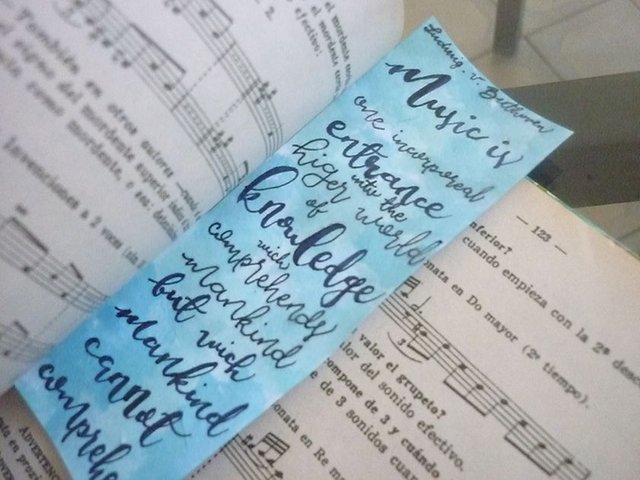 Ludwig. V. Beethoven
Music is
one incorporeal
entrance
into the
higer world
of
knowledge
wich
comprehends
mankind
but wich
mankind
cannot
comprehe
el mordente
el mordente con
efectivo:
2.
También en otros autores
el signo del mordente superior
como mordente, o sea:
Invenciones a 2 voces
— 123 —
inferior?
cuando empieza con la 2ª
nata en Do mayor (2º tiempo).
valor el grupeto?
lor del sonido efectivo.
ompone de 3 y cuándo
de 3 sonidos cuan
onata en Re m
ADVERTEN